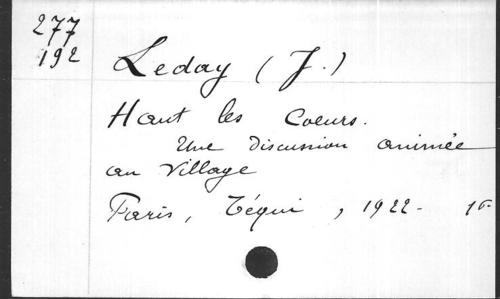 277
192
Leday (J.)
Haut les Coeurs.
Une discussion animée
au Village
Paris, Téqui, 1922-